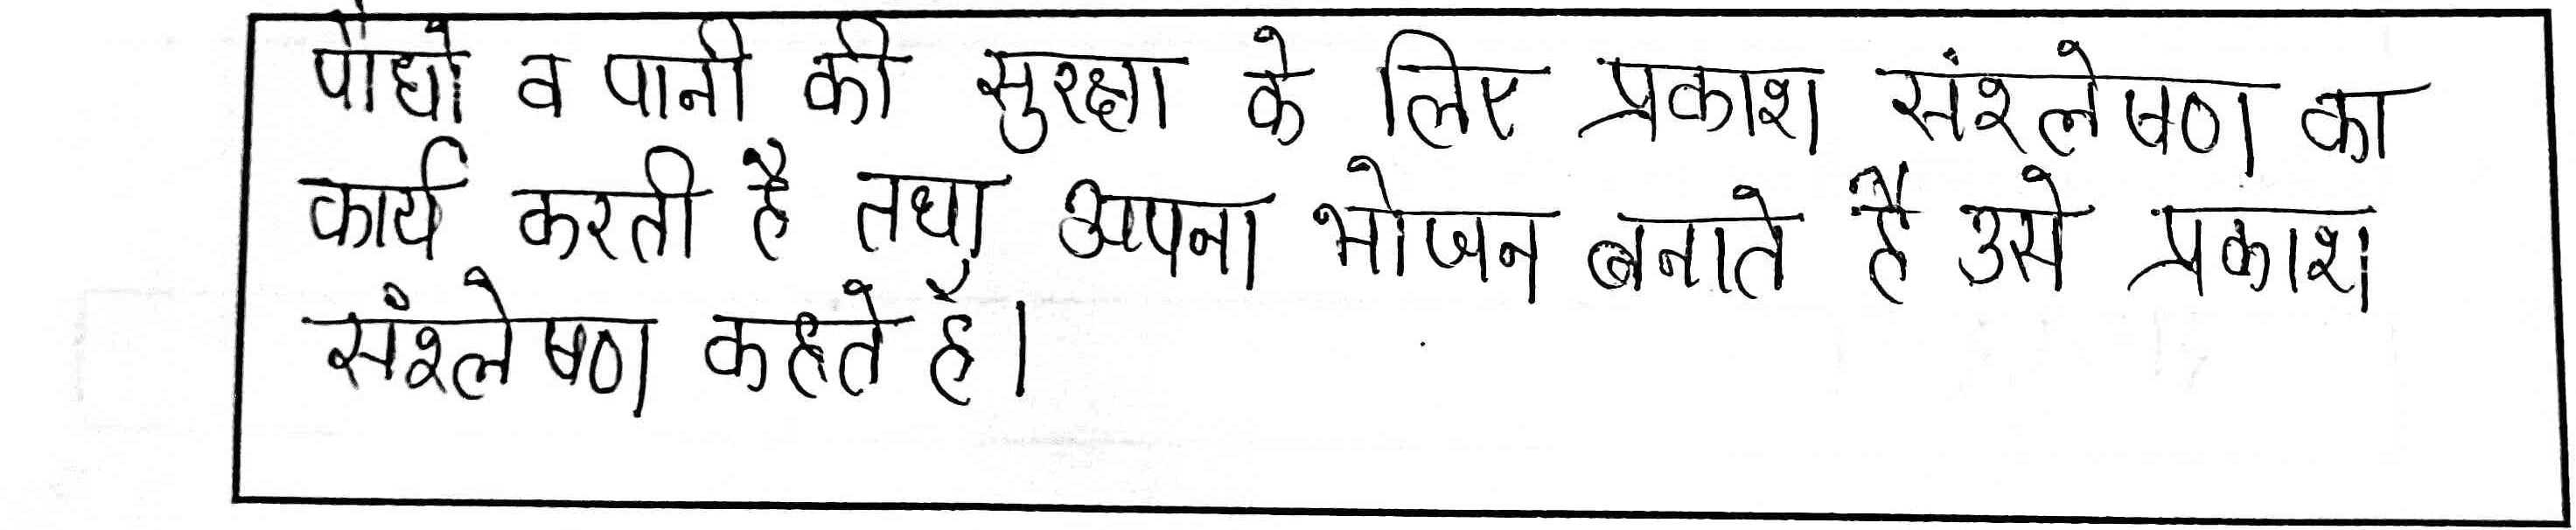 पौधो व पानी की सुरक्षा के लिए प्रकाश संश्लेषण का
कार्य करती है तथा अपना भोजन बनाते है उसे प्रकाश
संश्लेषण कहते है।